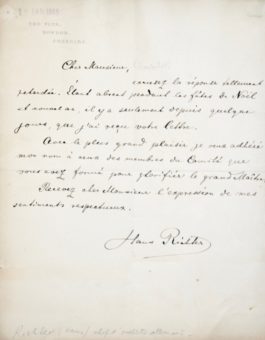 Cher Monsieur,
excusez la réponse tellement
retardée. Étant absent pendant les fêtes de Noël
et nouvel an, il y a seulement depuis quelque
jours, que j'ai reçu votre lettre.
Avec le plus grand plaisir je vous adhère
mon nom à ceux des membres du Comité que
vous avez formé pour glorifier le grand Maître.
Recevez cher Monsieur l'expression de mes
sentiments respectueux.
Hans Richter